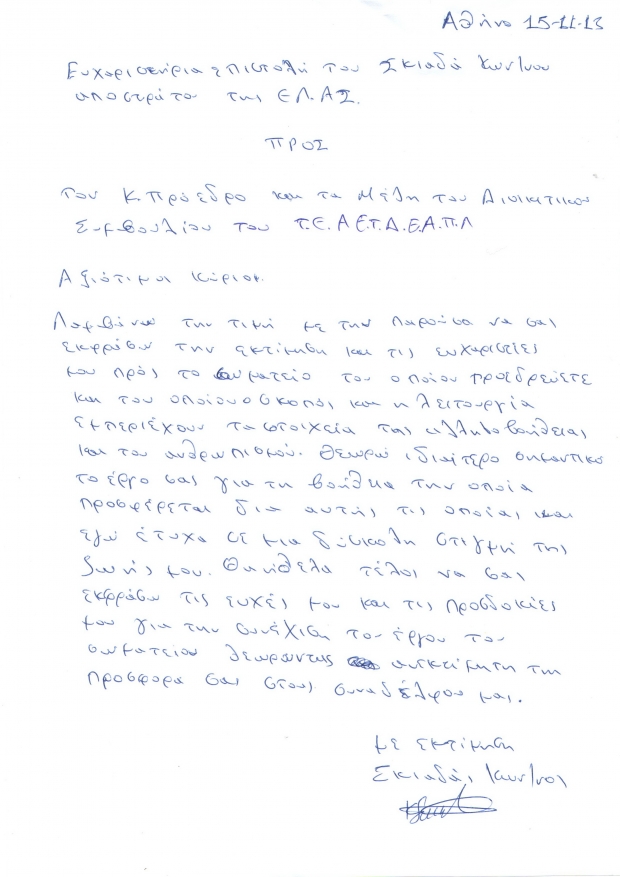 Αθήνα 15-11-13
Ευχαριστήρια επιστολή του Σκιαδά Κων/νου
αποστράτου της ΕΛ.ΑΣ.
ΠΡΟΣ
Τον Κ. Πρόεδρο και τα Μέλη του Διοικητικού
Συμβουλίου του Τ.Ε.Α Ε.Τ.Δ.Ε.Α.Π.Λ
Αξιότιμοι Κύριοι.
Λαμβάνω την τιμή με την παρούσα να σας
εκφράσω την εκτίμηση και τις ευχαριστίες
μου πρός το σωματείο του οποίου προεδρεύετε
και του οποίου ο σκοπός και η λειτουργία
εμπεριέχουν τα στοιχεία της αλληλοβοήθειας
και του ανθρωπισμού. Θεωρώ ιδιαίτερο σημαντικό
το έργο σας για τη βοήθεια την οποία
προσφέρεται δια αυτής τις οποίας και
εγώ έτυχα σε μια δύσκολη στιγμή της
ζωής μου. Θα ήθελα τέλος να σας
εκφράσω τις ευχές μου και τις προσδοκίες
μου για την συνέχιση του έργου του
σωματείου θεωρώντας ανεκτίμητη την
προσφορα σας στους συναδέλφου μας.
με εκτίμηση
Σκιαδάς Κων/νος